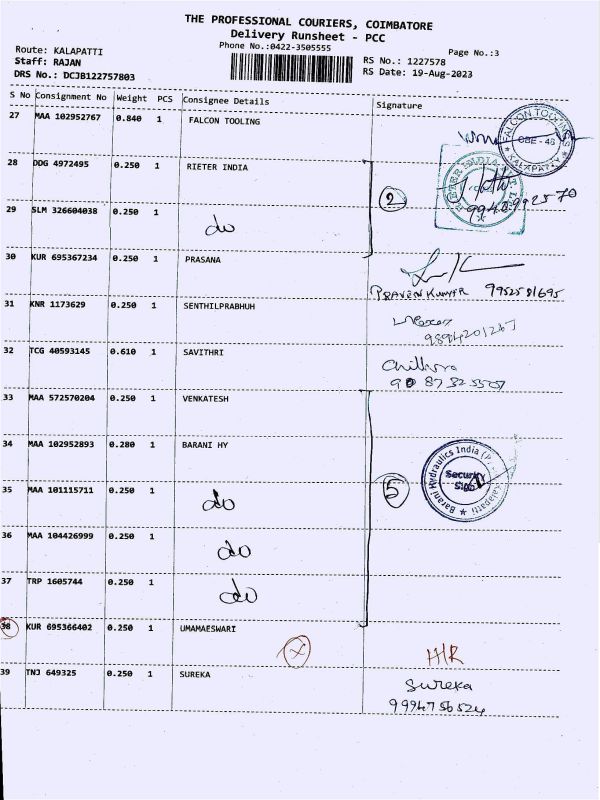 THE PROFESSIONAL COURIERS, COIMBATORE
Delivery Runsheet - PCC
Phone No.:0422-3505555
Page No.:3
Route: KALAPATTI
Staff: RAJAN
DRS No.: DCJB122757803
RS No.: 1227578
RS Date: 19-Aug-2023
S No Consignment No Weight PCS Consignee Details Signature
27 MAA 102952767 0.840 1 FALCON TOOLING
FALCON TOOLINGS
CBE - 48
KALAPATTY
28 DDG 4972495 0.250 1 RIETER INDIA
2
29 SLM 326604038 0.250 1 do
30 KUR 695367234 0.250 1 PRASANA
PRAVEEN KUMAR 9952581695
31 KNR 1173629 0.250 1 SENTHILPRABHUH
9894201267
32 TCG 40593145 0.610 1 SAVITHRI
33 MAA 572570204 0.250 1 VENKATESH
34 MAA 102952893 0.280 1 BARANI HY
Barani Hydraulics India
Kalapatti
Security
Sign
5
35 MAA 101115711 0.250 1 do
36 MAA 104426999 0.250 1 do
37 TRP 1605744 0.250 1 do
38 KUR 695366402 0.250 1 UMAMAESWARI
X
H/R
39 TNJ 649325 0.250 1 SUREKA
Sureka
9994756524